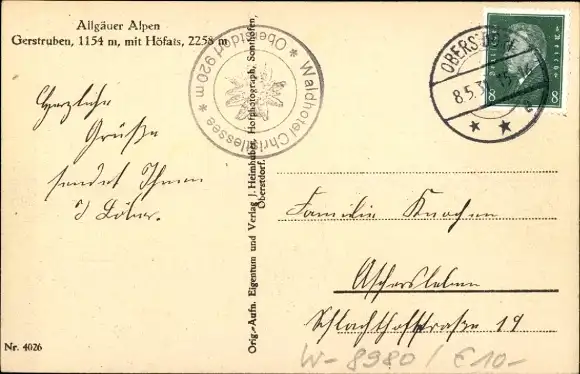 Allgäuer Alpen
Gerstruben, 1154 m, mit Höfats, 2258 m
Herzliche
Grüße
sendet Ihnen
Waldhotel Christlessee
* Oberstdorf 920 m *
Orig.-Aufn. Eigentum und Verlag J. Heimhuber, Hofphotograph, Sonthofen,
Oberstdorf.
8.5.3
8 8
Familie Knochen
Aschersleben
Schlachthofstraße 19
Nr. 4026
W-8980/€10-